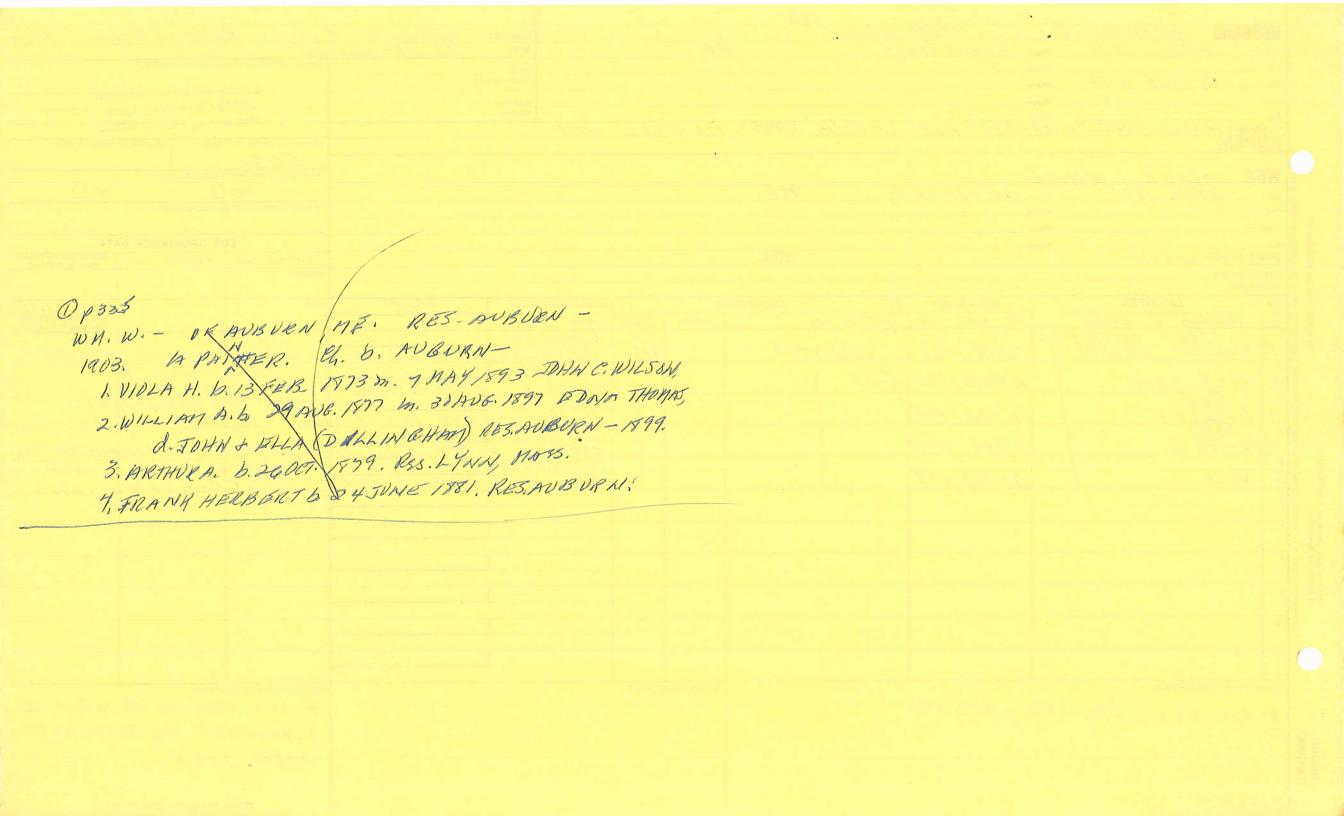 ① p335
WM. W. - OF AUBURN, ME. RES. AUBURN -
1903. A PAINTER. Ch. b. AUBURN -
1. VIOLA H. b. 13 FEB. 1873 m. 7 MAY 1893 JOHN C. WILSON,
2. WILLIAM A. b 29 AUG. 1877 m. 30 AUG. 1897 EDNA THOMAS,
d. JOHN & ELLA (DILLINGHAM) RES. AUBURN - 1899.
3. ARTHUR A. b. 26 OCT. 1879. Res. LYNN, MASS.
4. FRANK HERBERT b 24 JUNE 1881. RES. AUBURN.